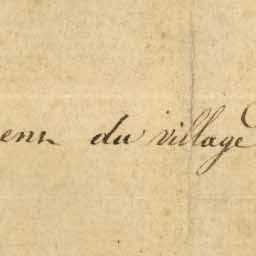 du village